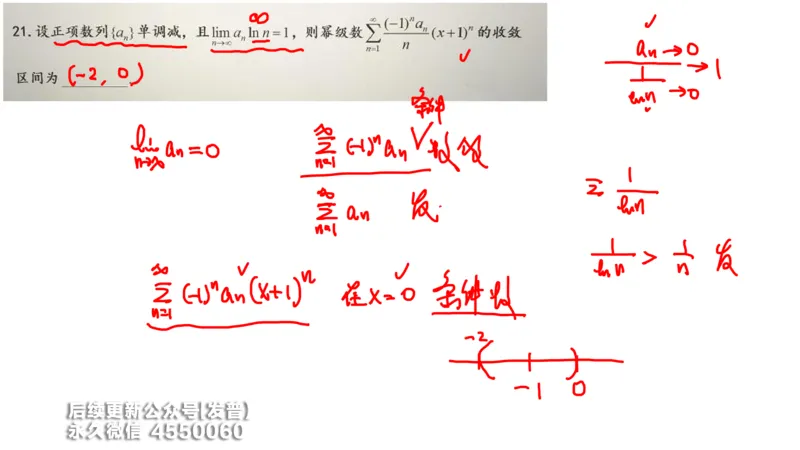 21. 设正项数列{aₙ}单调减，且lim aₙ ln n = 1，则幂级数 ∑ (-1)ⁿaₙ/n (x+1)ⁿ 的收敛
n→∞ n=1 ∞
∞
区间为 (-2, 0)
✓
aₙ → 0
→ 1
1/ln n → 0
条件
lim aₙ = 0
n→∞
∞ ∑ n=1 (-1)ⁿ aₙ ✓ 收敛
∞ ∑ n=1 aₙ 发.
∑ 1/ln n
1/ln n > 1/n 发
∞ ∑ n=1 (-1)ⁿ aₙ (x+1)ⁿ 在 x=0 条件收
-2
-1 0
后续更新公众号(发普)
永久微信 4550060